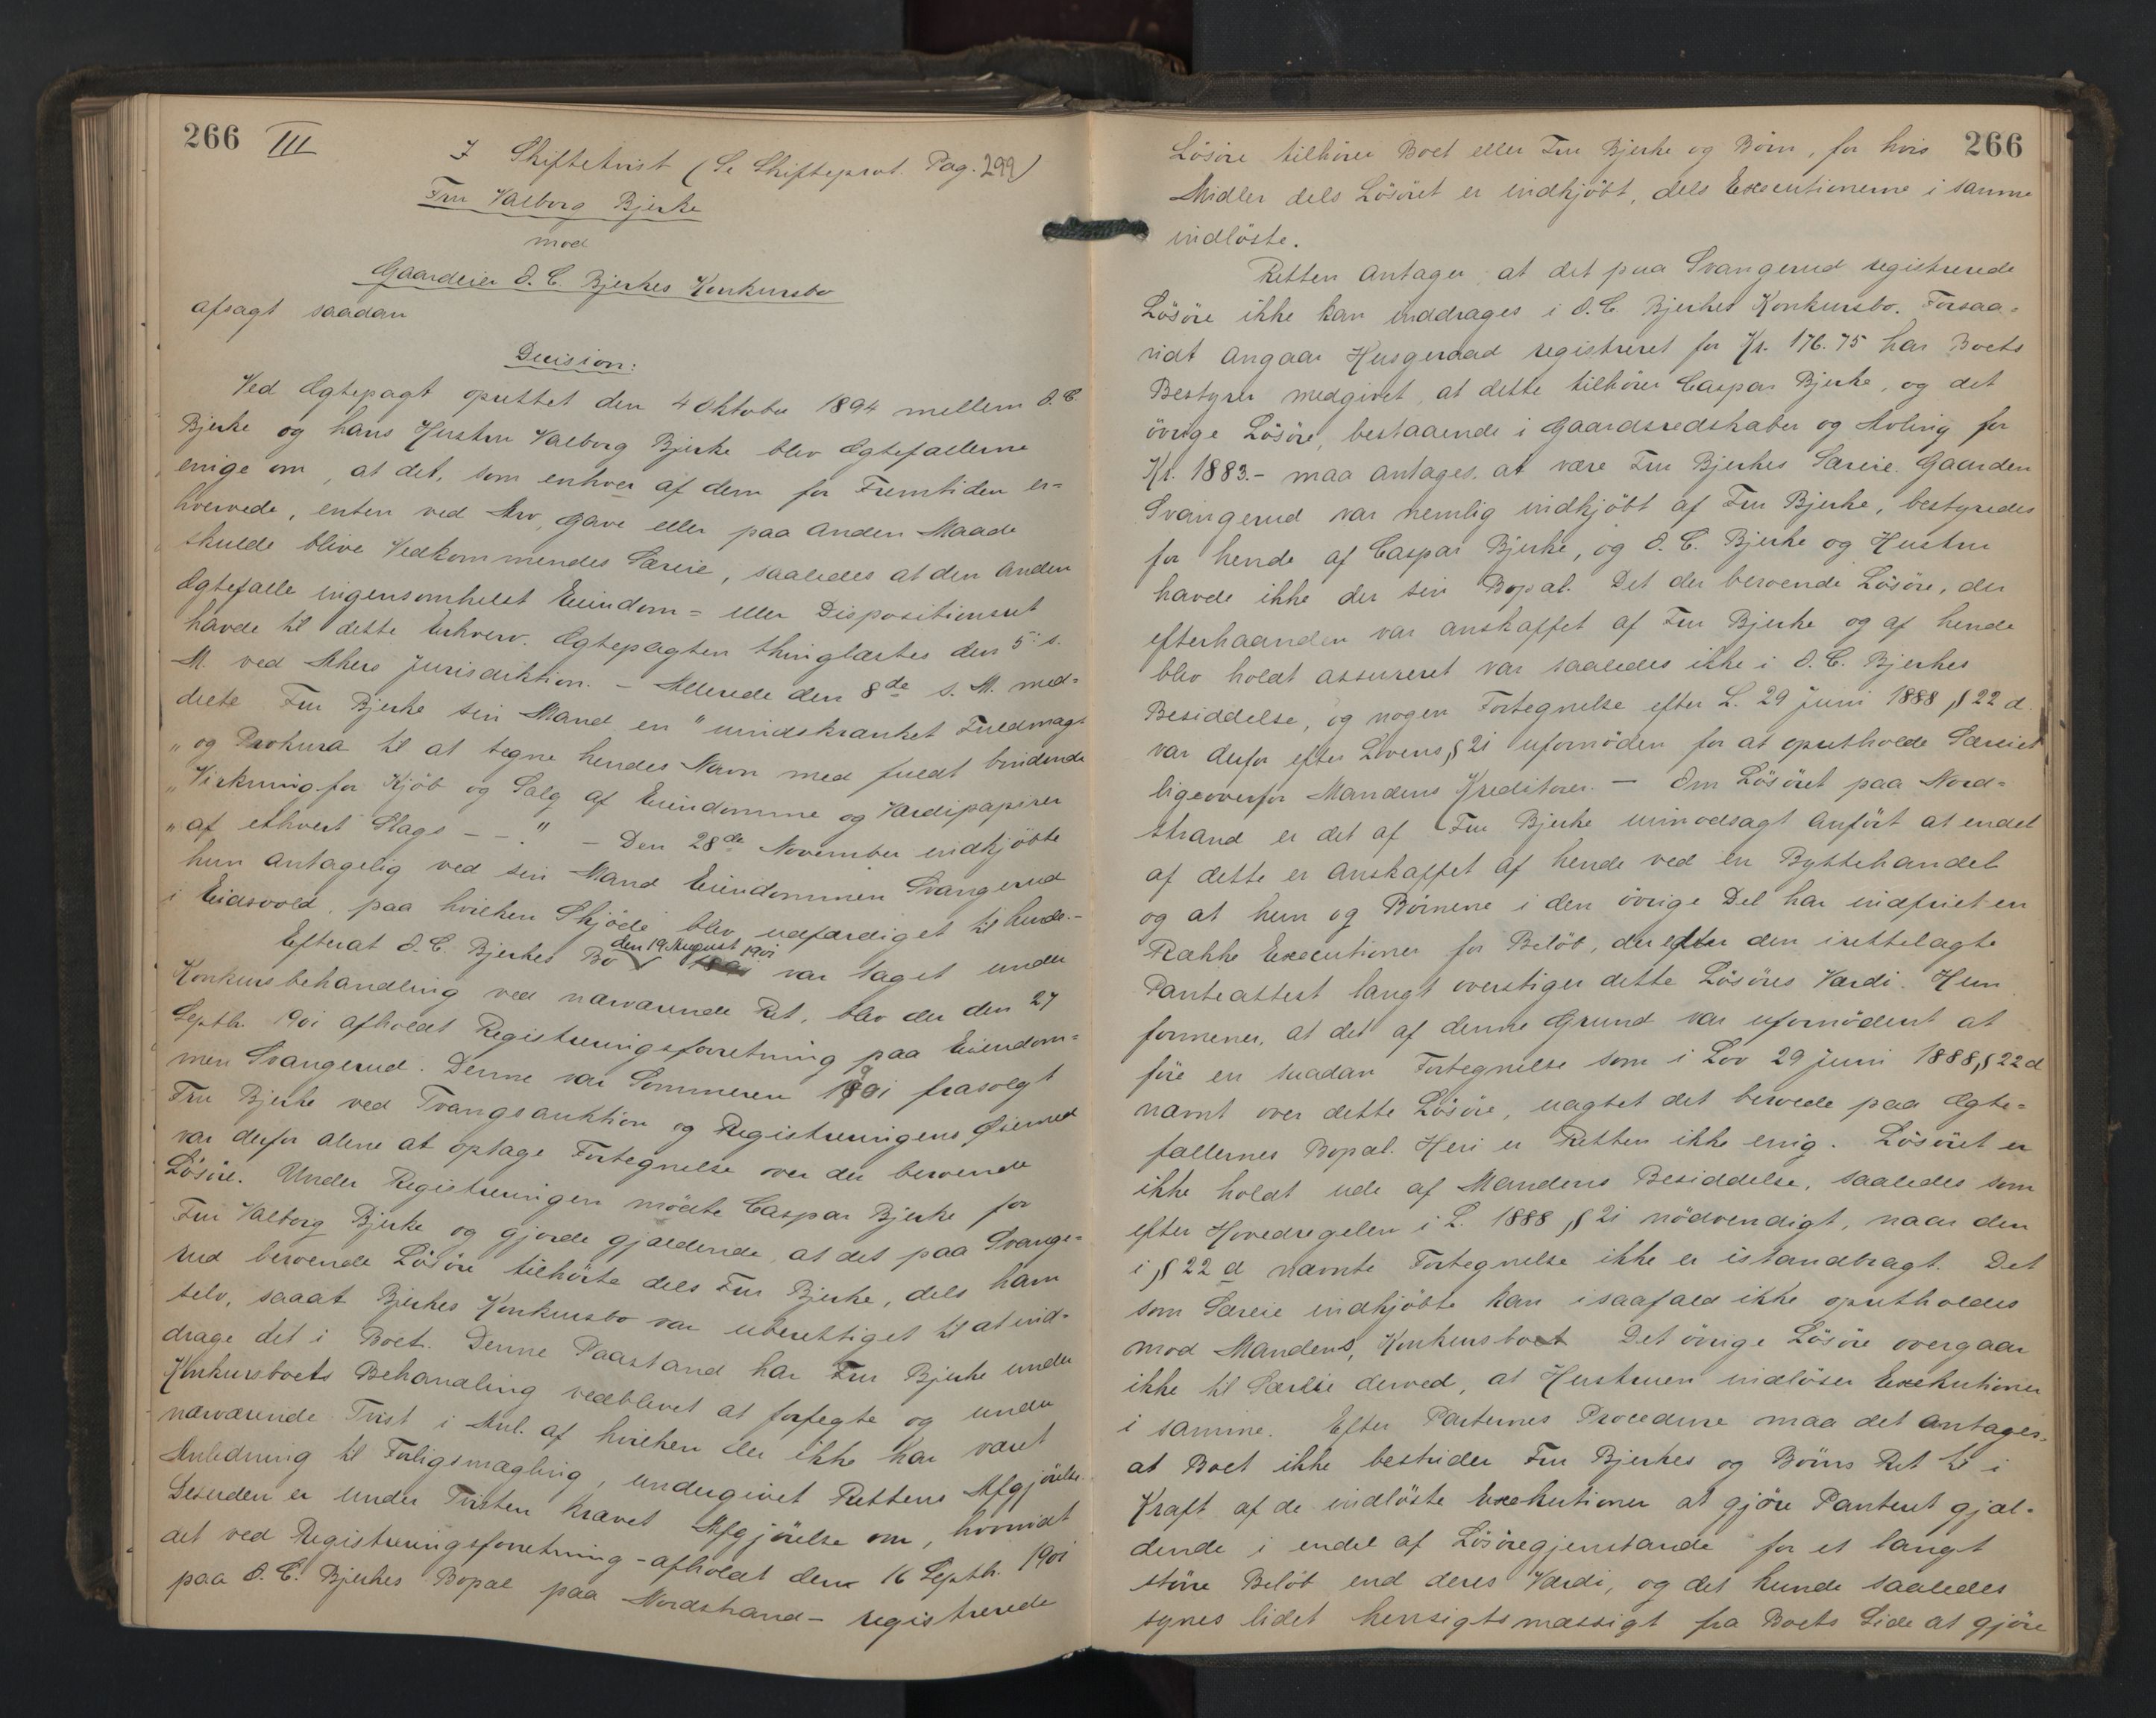 266 III
I Skiftetvist (Se Skifteprot. Pag. 299)
Fru Valborg Bjerke
mod
Gaardeier O. C. Bjerkes Konkursbo
afsagt saadan
Decision:
Ved Ægtepagt oprettet den 4 Oktober 1894 mellem O. C.
Bjerke og hans Hustru Valborg Bjerke blev Ægtefællerne
enige om, at det, som enhver af dem for Fremtiden er=
hvervede, enten ved Arv, Gave eller paa anden Maade
skulde blive Vedkommendes Særeie, saaledes at den anden
Ægtefælle ingensomhelst Eiendom= eller Dispositionsret
havde til dette Erhverv. Ægtepagten thinglæstes den 5: s.
M. ved Akers Jurisdiktion. – Allerede den 8de s. M. med=
delte Fru Bjerke sin Mand en "uindskrænket Fuldmagt
"og Prokura til at tegne hendes Navn med fuldt bindende
"Virkning for Kjöb og Salg af Eiendomme og Værdipapirer
"af ethvert Slags – – " – Den 28de November indkjöbte
hun antagelig ved sin Mand Eiendommen Svangerud
i Eidsvold, paa hvilken Skjöde blev udfærdiget til hende. –
Efterat O. C. Bjerkes Bo den 19 August 1901 var taget under
Konkursbehandling ved nærværende Ret, blev der den 27
Septbr. 1901 afholdt Registreringsforretning paa Eiendom=
men Svangerud. Denne var Sommeren 1901 frasolgt
Fru Bjerke ved Tvangsauktion og Registreringens Öiemed
var derfor alene at optage Fortegnelse over der beroende
Lösöre. Under Registreringen mödte Caspar Bjerke for
Fru Valborg Bjerke og gjorde gjældende, at det paa Svange=
rud beroende Lösöre tilhörte dels Fru Bjerke, dels ham
selv, saaat Bjerkes Konkursbo var uberettiget til at ind=
drage det i Boet. Denne Paastand har Fru Bjerke under
Konkursboets Behandling vedblevet at forfegte og under
nærværende Tvist i Anl. af hvilken der ikke har været
Anledning til Forligsmægling, undergivet Rettens Afgjörelse.
Desuden er under Tvisten krævet Afgjörelse om, hvorvidt
det ved Registreringsforretning – afholdt den 16 Septbr. 1901
paa O. C. Bjerkes Bopæl paa Nordstrand – registrerede
266
Lösöre tilhörer Boet eller Fru Bjerke og Börn, for hvis
Midler dels Lösöret er indkjöbt, dels Executionerne i samme
indlöste.
Retten antager, at det paa Svangerud registrerede
Lösöre ikke kan inddrages i O. C. Bjerkes Konkursbo. Forsaa=
vidt angaar Husgeraad registreret for Kr. 176.75 har Boets
Bestyrer medgivet, at dette tilhörer Caspar Bjerke, og det
övrige Lösöre, bestaaende i Gaardsredskaber og Avling for
Kr. 1883.– maa antages at være Fru Bjerkes Særeie. Gaarden
Svangerud var nemlig indkjöbt af Fru Bjerke, bestyredes
for hende af Caspar Bjerke, og O. C. Bjerke og Hustru
havde ikke der sin Bopæl. Det der beroende Lösöre, der
efterhaanden var anskaffet af Fru Bjerke og af hende
blev holdt assureret var saaledes ikke i O. C. Bjerkes
Besiddelse, og nogen Fortegnelse efter L. 29 Juni 1888 § 22 d.
var derfor efter Lovens § 21 ufornöden for at opretholde Særeiet
ligeoverfor Mandens Kreditorer. – Om Lösöret paa Nord=
strand er det af Fru Bjerke uimodsagt anfört at endel
af dette er anskaffet af hende ved en Byttehandel
og at hun og Börnene i den övrige Del har indfriet en
Række Executioner for Belöb, der efter den irettelagte
Panteattest langt overstiger dette Lösöres Værdi. Hun
formener, at det af denne Grund var ufornödent at
före en saadan Fortegnelse som i Lov 29 Juni 1888, § 22 d
nævnt over dette Lösöre, uagtet det beroede paa Ægte=
fællernes Bopæl. Heri er Retten ikke enig. Lösöret er
ikke holdt ude af Mandens Besiddelse, saaledes som
efter Hovedregelen i L. 1888 § 21 nödvendigt, naar den
i § 22 d nævnte Fortegnelse ikke er istandbragt. Det
som Særeie indkjöbte kan isaafald ikke opretholdes
mod Mandens, Konkursboet. Det övrige Lösöre overgaar
ikke til Særeie derved, at Hustruen indlöser Exekutioner
i samme. Efter Parternes Procedure maa det antages,
at Boet ikke bestrider Fru Bjerkes og Börns Ret til i
Kraft af de indlöste Exekutioner at gjöre Panteret gjæl=
dende i endel af Lösöregjenstande for et langt
större Belöb end deres Værdi, og det kunde saaledes
synes lidet hensigtsmæssigt fra Boets Side at gjöre